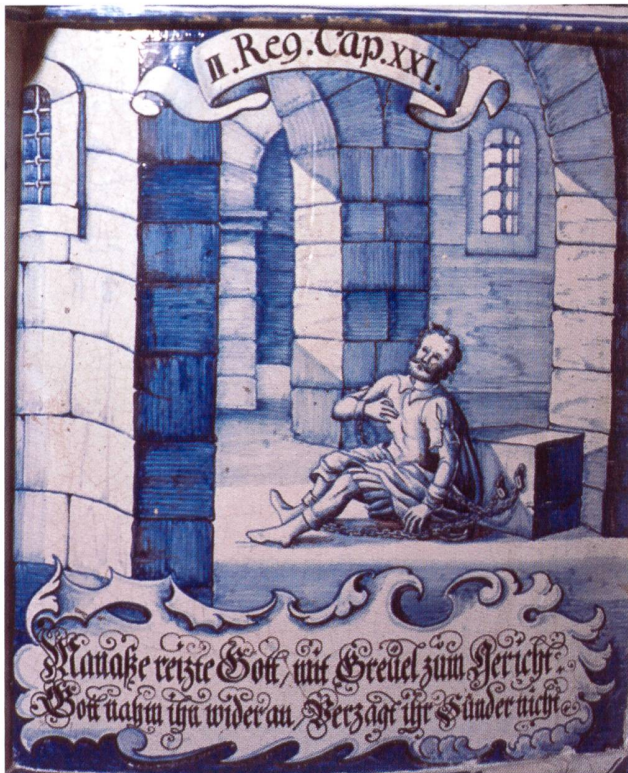 II. Reg. Cap. XXI.
Manaße reizte Gott / mit Greüel zum Gericht.
Gott nahm ihn wider an / Verzagt ihr Sünder nicht.